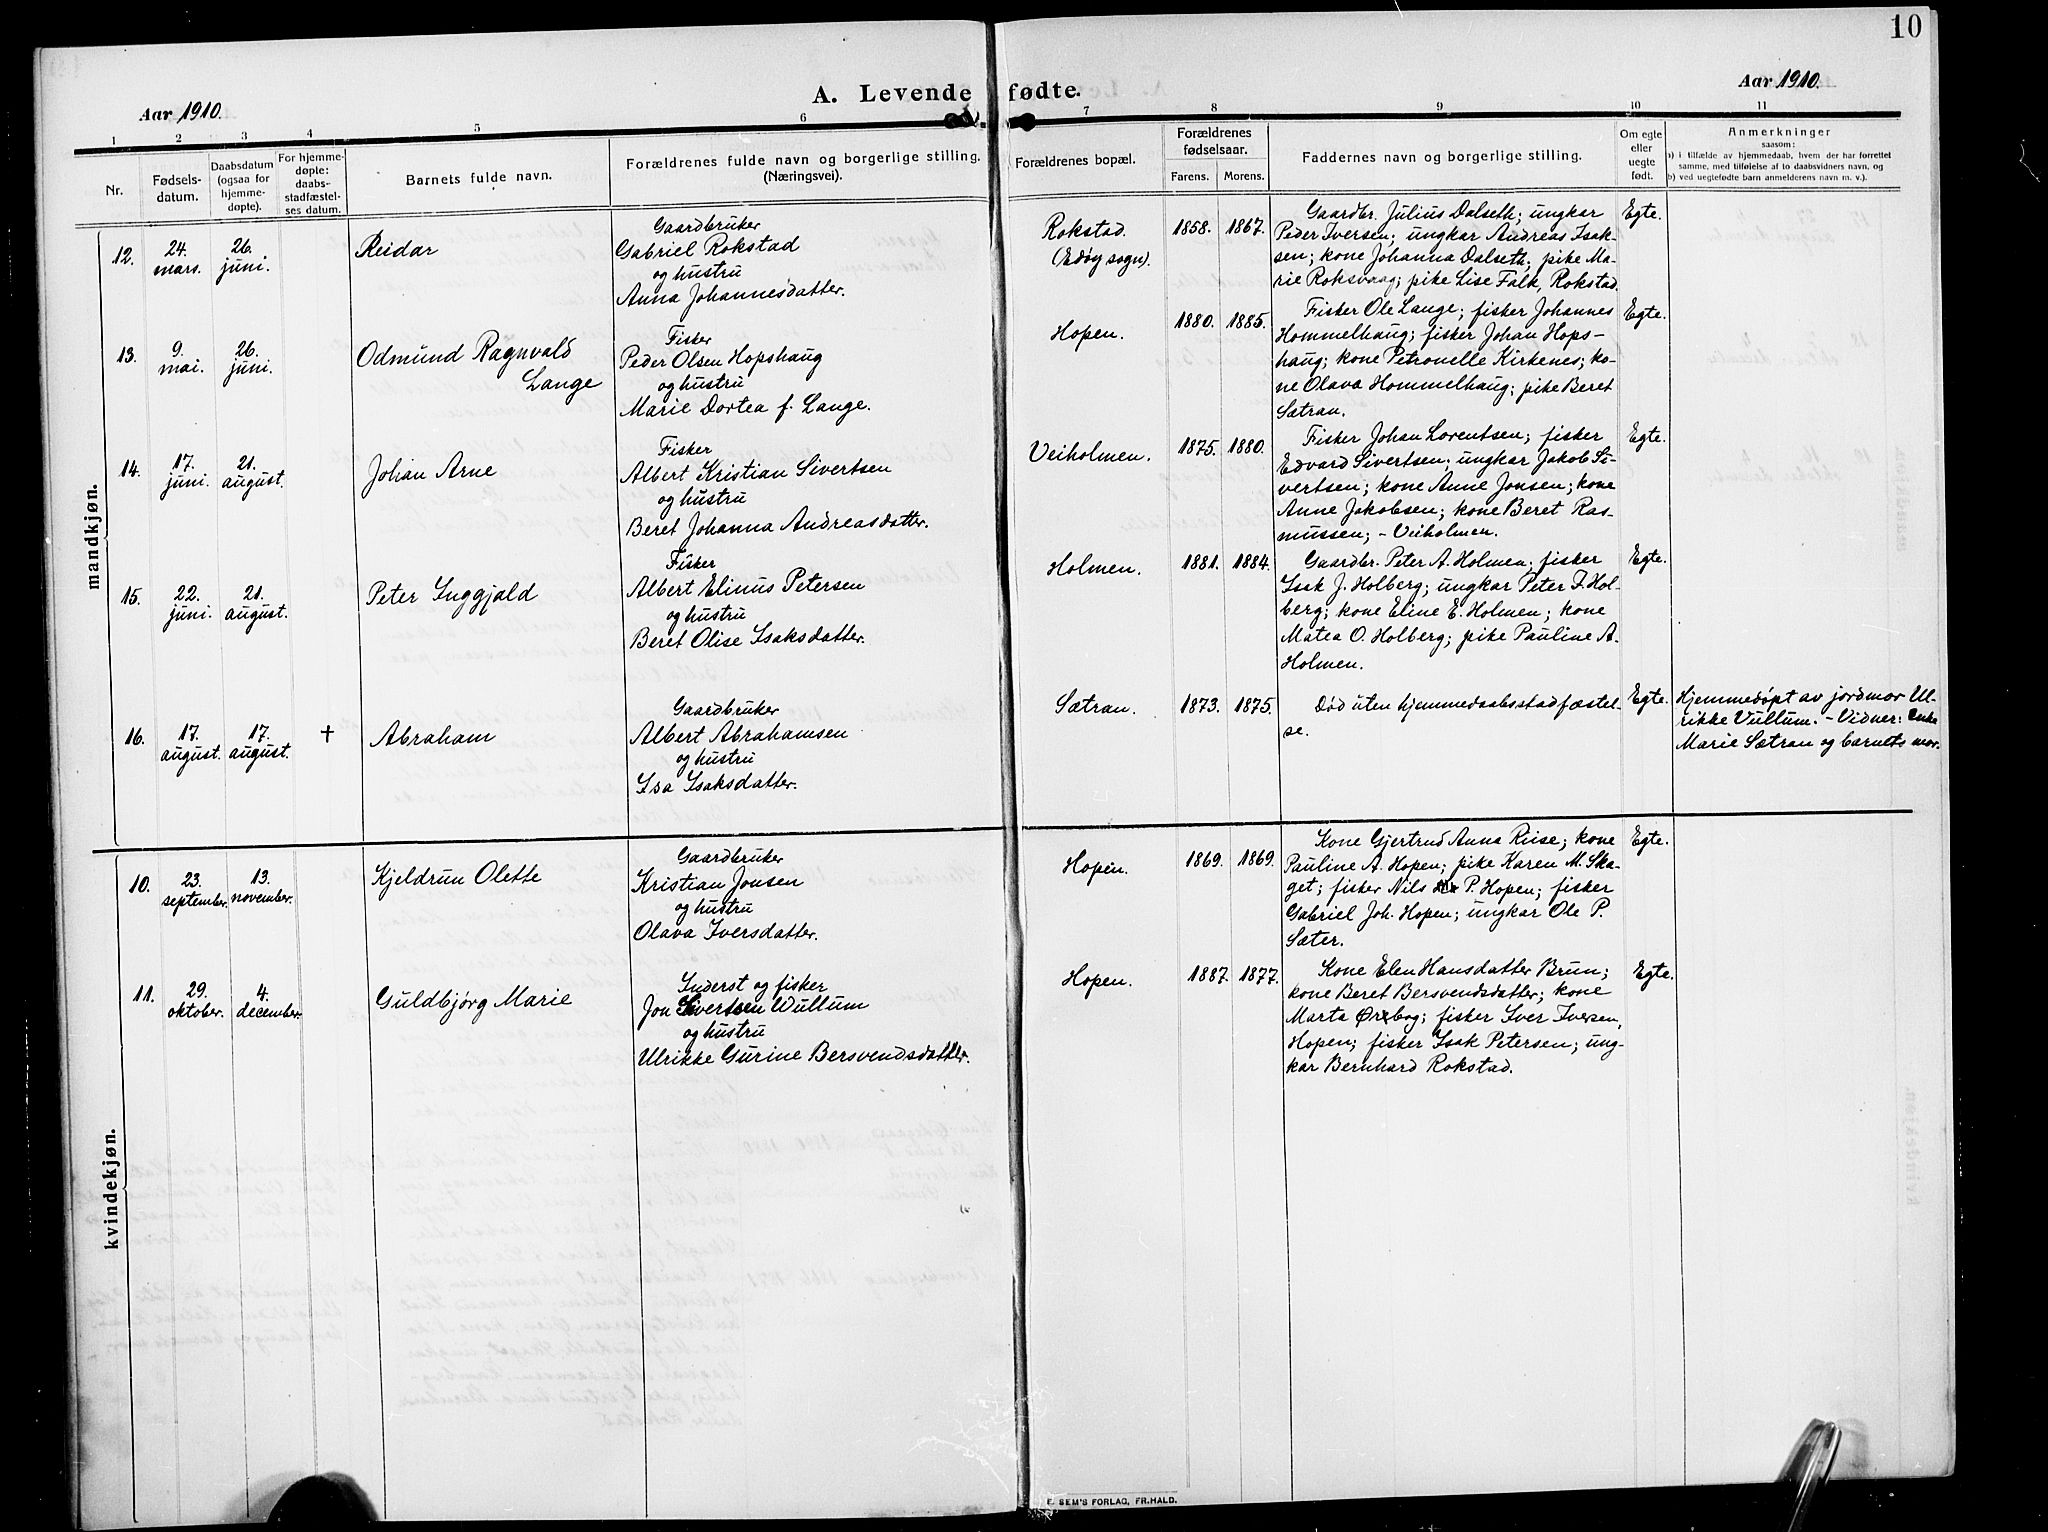 10
A. Levende fødte.
Aar 1910.
Aar 1910.
1 2 3 4 5 6 7 8 9 10 11
Nr.
Fødsels-
datum.
Daabsdatum
(ogsaa for
hjemme-
døpte).
For hjemme-
døpte:
daabs-
stadfæstel-
ses datum.
Barnets fulde navn.
Forældrenes fulde navn og borgerlige stilling.
(Næringsvei).
Forældrenes bopæl.
Forældrenes
fødselsaar.
Farens. Morens.
Faddernes navn og borgerlige stilling.
Om egte
eller
uegte
født.
Anmerkninger
saasom:
a) i tilfælde av hjemmedaab, hvem der har forrettet
samme, med tilføielse af to daabsvidners navn, og
b) ved uegtefødte barn anmelderens navn m. v.).
mandkjøn.
12.
24.
mars.
26.
juni.
Reidar
Gaardbruker
Gabriel Rokstad
og hustru
Anna Johannesdatter.
Rokstad.
(Edøy sogn).
1858. 1867.
Gaardbr. Julius Dalseth; ungkar
Peder Iversen; ungkar Andreas Isak-
sen; kone Johanna Dalseth; pike Ma-
rie Roksvaag; pike Lise Falk, Rokstad.
Egte.
13.
9.
mai.
26.
juni.
Odmund Ragnvald
Lange
Fisker
Peder Olsen Hopshaug
og hustru
Marie Dortea f. Lange.
Hopen.
1880. 1885.
Fisker Ole Lange; fisker Johannes
Hommelhaug; fisker Johan Hops-
haug; kone Petronelle Kirkenes; ko-
ne Olava Hommelhaug; pike Beret
Sætran.
Egte.
14.
17.
juni.
21.
august.
Johan Arne
Fisker
Albert Kristian Sivertsen
og hustru
Beret Johanna Andreasdatter.
Veiholmen.
1875. 1880.
Fisker Johan Lorentsen; fisker
Edvard Sivertsen; ungkar Jakob Si-
vertsen; kone Anne Jonsen; kone
Anne Jakobsen; kone Beret Ras-
mussen; - Veiholmen.
Egte.
15.
22.
juni.
21.
august.
Peter Inggjald
Fisker
Albert Elinus Petersen
og hustru
Beret Olise Isaksdatter.
Holmen.
1881. 1884.
Gaardbr. Peter A. Holmen; fisker
Isak J. Holberg; ungkar Peter F. Hol-
berg; kone Eline E. Holmen; kone
Matea O. Holberg; pike Pauline A.
Holmen.
Egte.
16.
17.
august.
17.
august.
†
Abraham
Gaardbruker
Albert Abrahamsen
og hustru
Isa Isaksdatter.
Sætran.
1873. 1875.
Død uten hjemmedaabsstadfæstel-
se.
Egte.
Hjemmedøpt av jordmor Ul-
rikke Vullum. - Vidner: Enke
Marie Sætran og barnets mor.
kvindekjøn.
10.
23.
september.
13.
november.
Kjeldrun Olette
Gaardbruker
Kristian Jonsen
og hustru
Olava Iversdatter.
Hopen.
1869. 1869.
Kone Gjertrud Anna Riise; kone
Pauline A. Hopen; pike Karen M. Ska-
get; fisker Nils P. Hopen; fisker
Gabriel Joh. Hopen; ungkar Ole P.
Sæter.
Egte.
11.
29.
oktober.
4.
december.
Guldbjørg Marie
Inderst og fisker
Jon Sivertsen Wullum
og hustru
Ulrikke Gurine Bersvendsdatter.
Hopen.
1887. 1877.
Kone Elen Hansdatter Brun;
kone Beret Bersvendsdatter; kone
Marta Ørebog; fisker Iver Iversen,
Hopen; fisker Isak Petersen; ung-
kar Bernhard Rokstad.
Egte.
E. SEM'S FORLAG, FR.HALD.